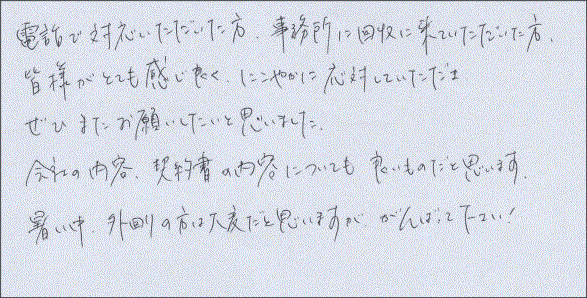 電話で対応いただいた方、事務所に回収に来ていただいた方、
皆様がとても感じ良く、にこやかに応対していただき
ぜひまたお願いしたいと思いました。
会社の内容、契約書の内容についても良いものだと思います。
暑い中、外回りの方は大変だと思いますががんばって下さい！